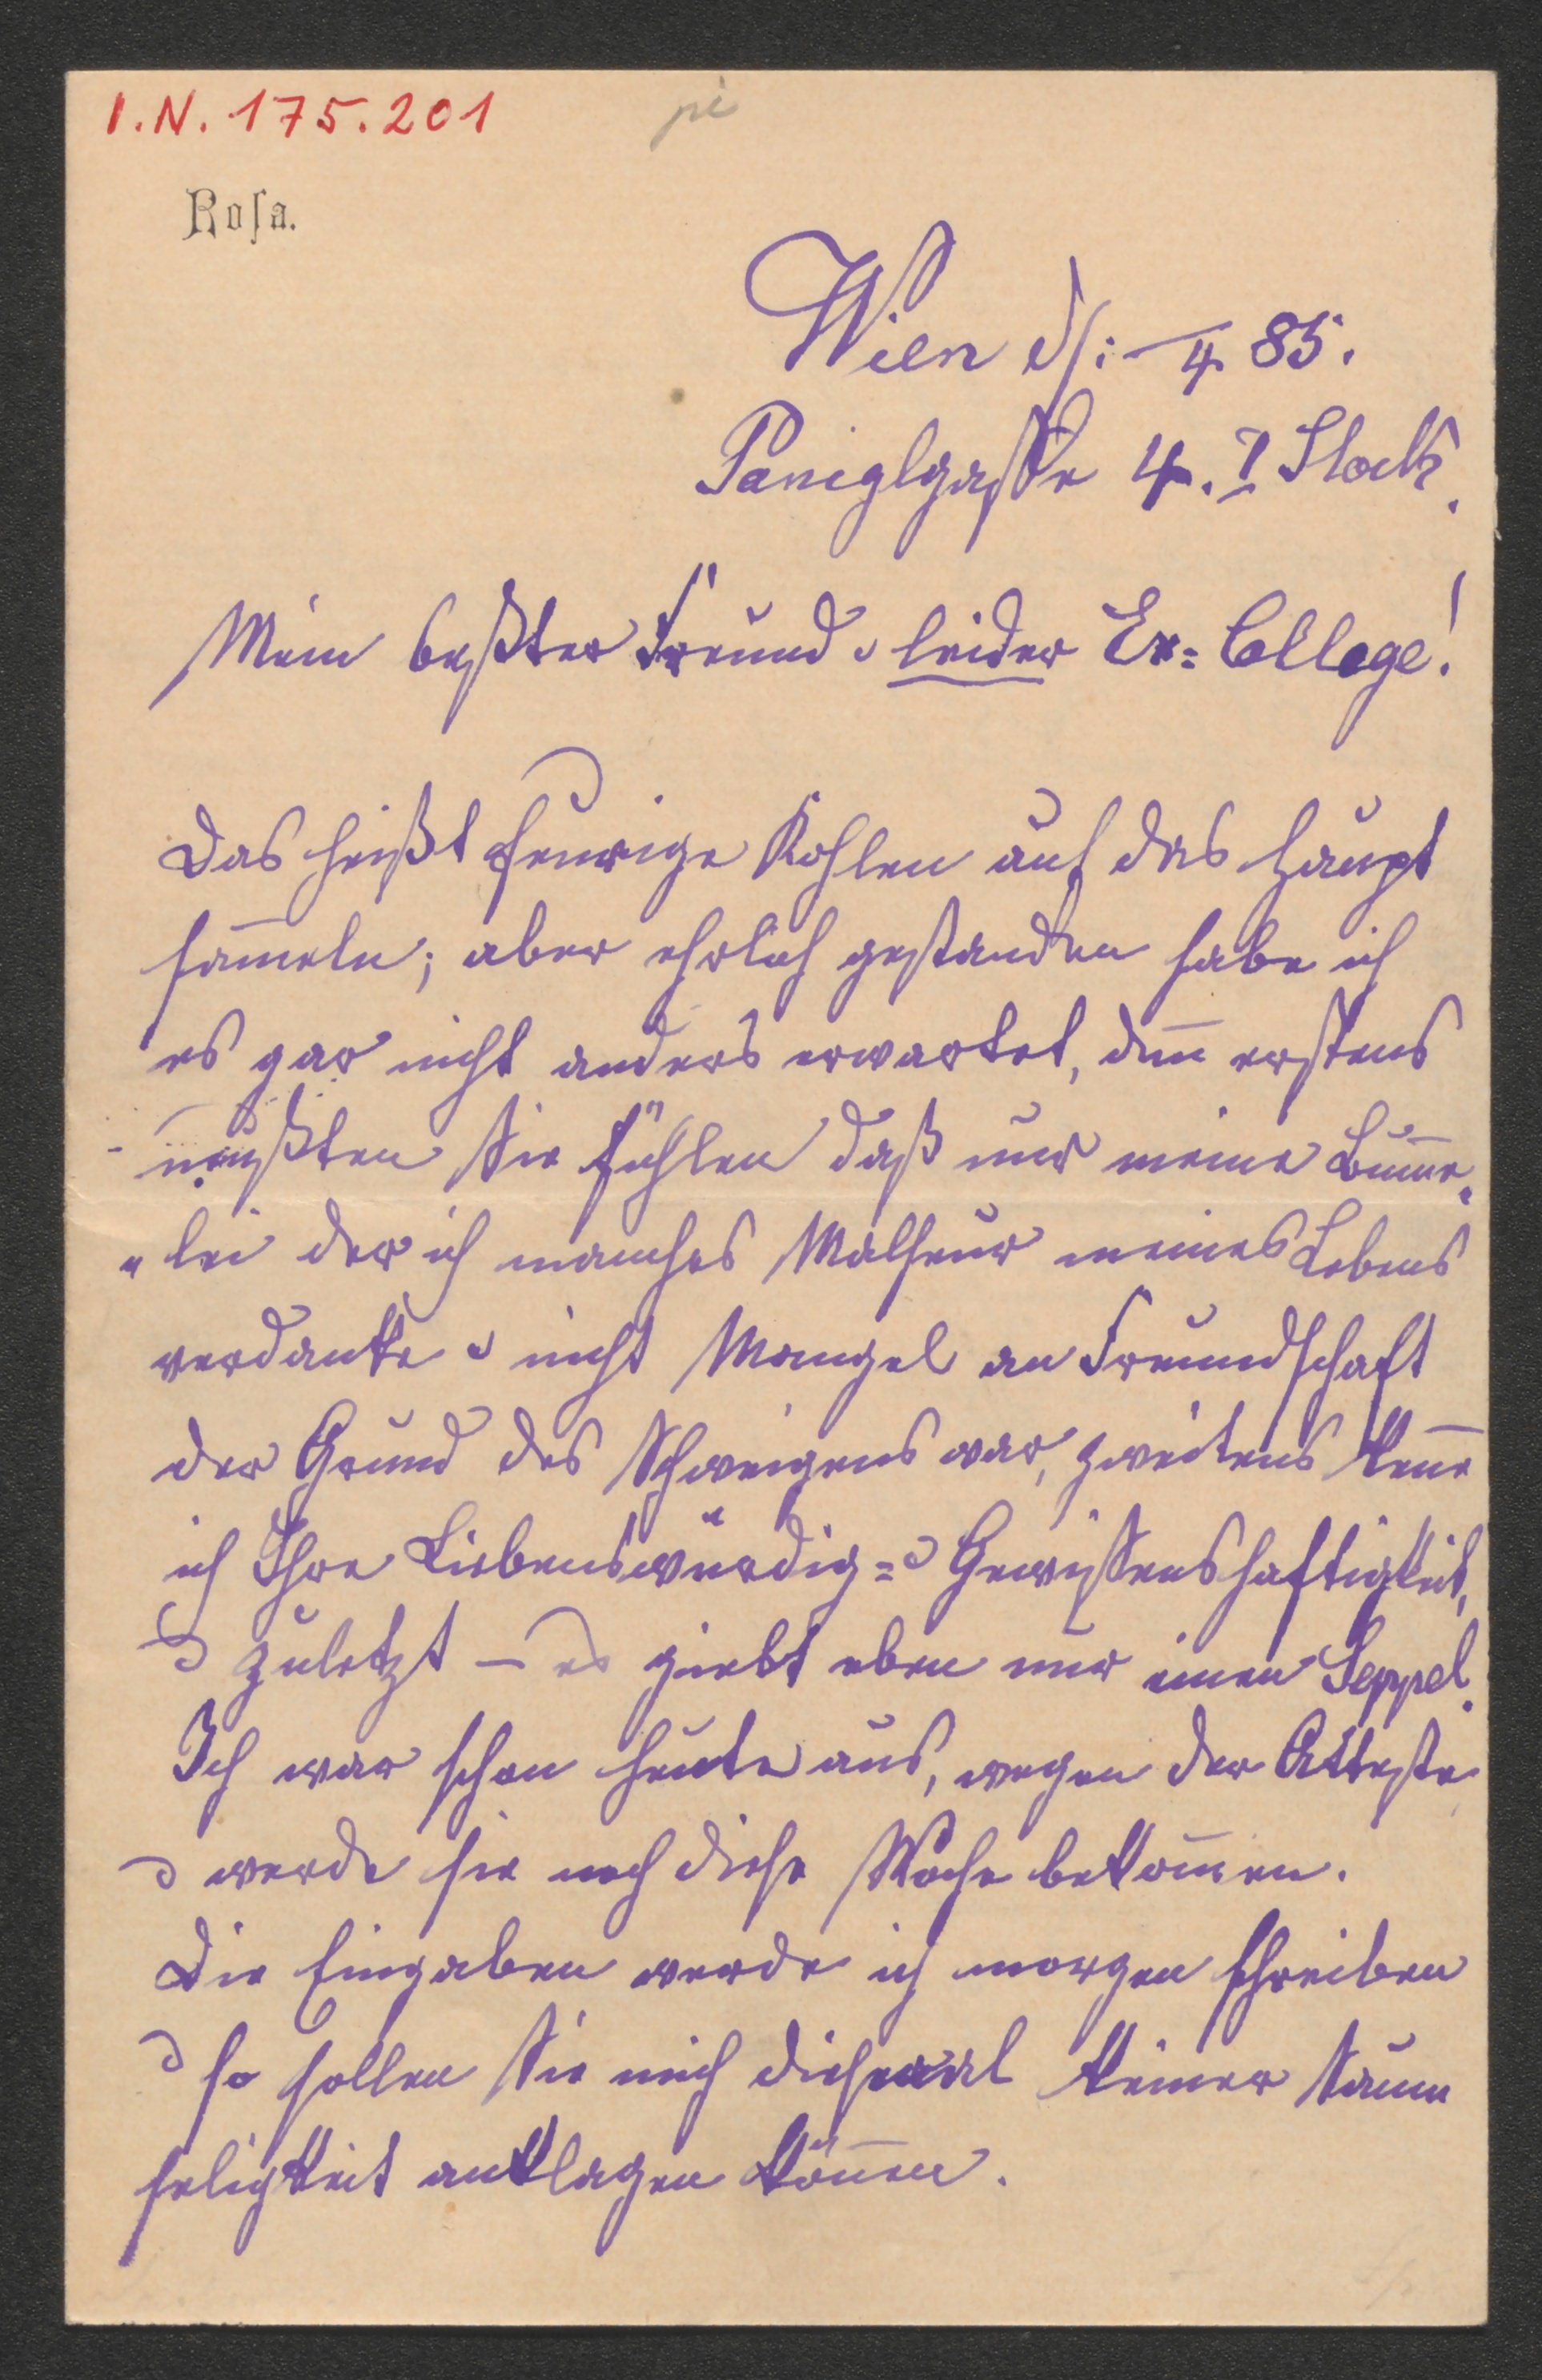 I.N. 175.201
pi
Rosa.
Wien d/: 4 85.
Paniglgasse 4. I Stock.
Mein bester Freund u leider Ex=College!
Das heißt feurige Kohlen auf das Haupt
sam̄eln; aber ehrlich gestanden habe ich
es gar nicht anders erwartet, den̄ erstens
mußten Sie fühlen daß nur meine Bum̄e„
„lei der ich manches Malheur meines Lebens
verdanke u nicht Mangel an Freundschaft
der Grund des Schweigens war, zweitens ken̄e
ich Ihre Liebenswürdig= u Gewissenshaftigkeit,
u zuletzt – es giebt eben nur einen Seppel.
Ich war schon heute aus, wegen der Atteste
u werde sie noch diese Woche bekom̄en.
Die Eingaben werde ich morgen schreiben
u so sollen Sie mich diesmal keiner Saum
seligkeit anklagen kön̄en.